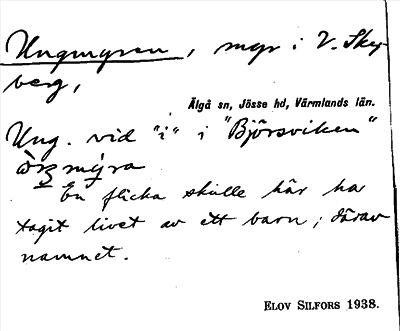 Ungmyren, myr i V. Sky-
berg,
Älgå sn, Jösse hd, Värmlands län.
Ung. vid "i" i "Björsviken"
mýra
En flicka skulle här ha
tagit livet av ett barn; därav
namnet.
ELOV SILFORS 1938.